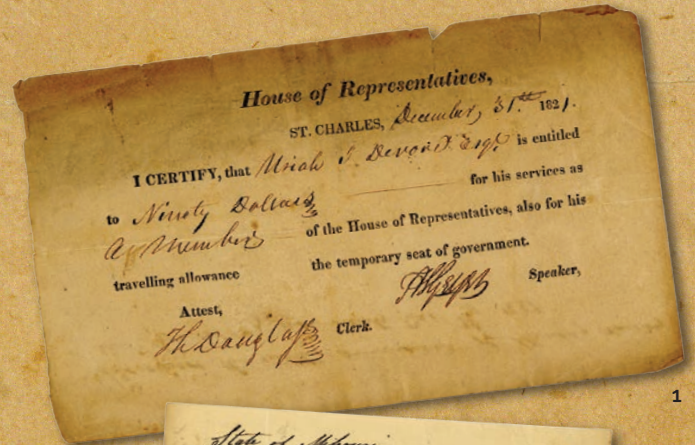 House of Representatives,
ST. CHARLES, December, 31.st 1821.
I CERTIFY, that Uriah J. Devore Esqr. is entitled
to Ninety Dollars for his services as
a Member of the House of Representatives, also for his
travelling allowance the temporary seat of government.
Speaker,
Attest,
Th Douglass Clerk.
1
State of Missouri